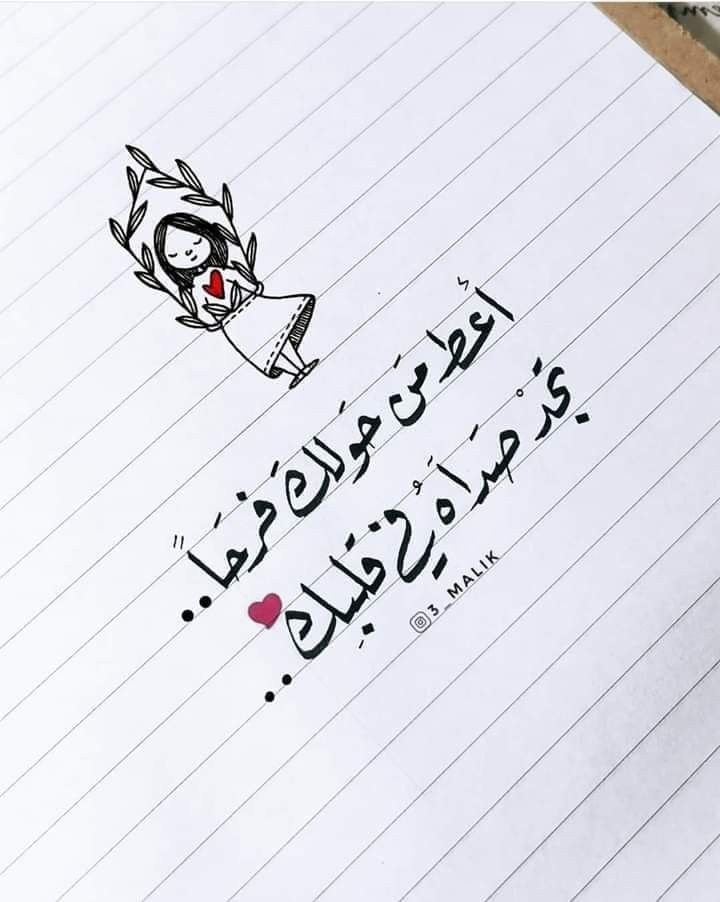 أعطِ مَن حَولكَ فرحَاً..
تجَدْ صَدَاهَ في قلبِك..
3_MALIK